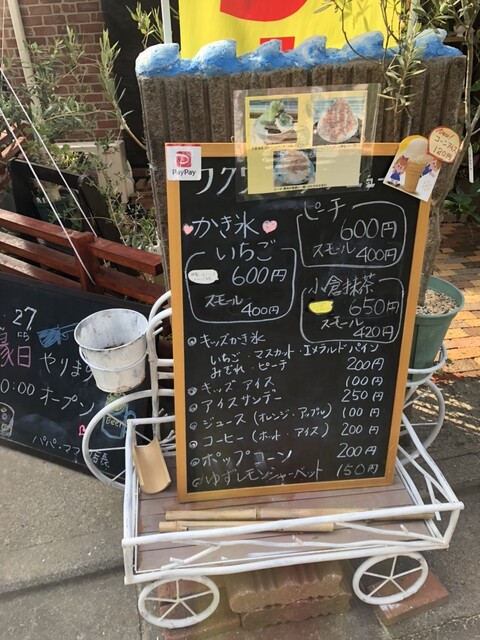 PayPay
ワクワ
ュー
かき氷
いちご
600円
スモール
400円
ピーチ
600円
スモール 400円
小倉抹茶
650円
スモール
420円
キッズかき氷
いちご・マスカット・エメラルドパイン
みぞれ・ピーチ 200円
キッズアイス 100円
アイスサンデー 250円
ジュース(オレンジ・アップル) 100円
コーヒー(ホット・アイス) 200円
ポップコーン 200円
ゆずレモンシャーベット 150円
27
縁日 やりま
0:00 オープン
Beer
パパ・ママ 店長